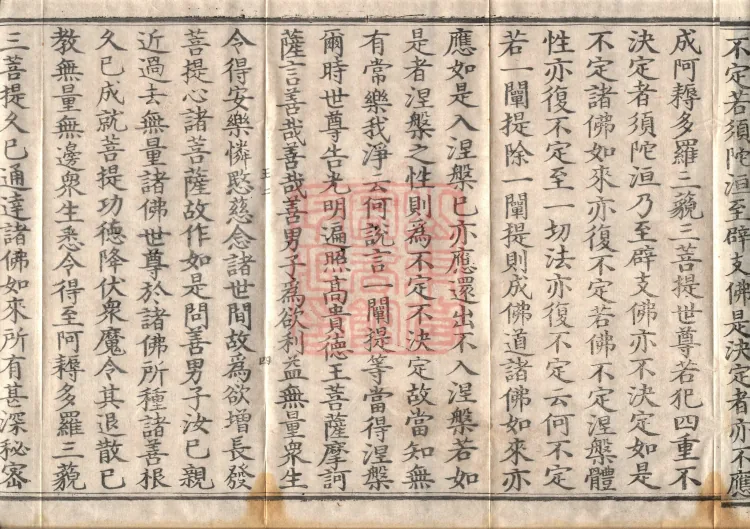 不定若須陀洹至辟支佛是決定者亦不應
成阿耨多羅三藐三菩提世尊若犯四重不
決定者須陀洹乃至辟支佛亦不決定如是
不定諸佛如來亦復不定若佛不定涅槃體
性亦復不定至一切法亦復不定云何不定
若一闡提除一闡提則成佛道諸佛如來亦
應如是入涅槃已亦應還出不入涅槃若如
是者涅槃之性則為不定不決定故當知無
有常樂我淨云何說言一闡提等當得涅槃
爾時世尊告光明遍照高貴德王菩薩摩訶
薩言善哉善哉善男子為欲利益無量衆生
令得安樂憐愍慈念諸世間故為欲增長發
菩提心諸菩薩故作如是問善男子汝已親
近過去無量諸佛世尊於諸佛所種諸善根
久已成就菩提功德降伏衆魔令其退散已
教無量無邊衆生悉令得至阿耨多羅三藐
三菩提久已通達諸佛如來所有甚深秘密